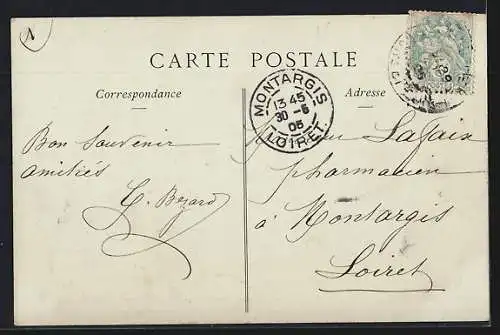 A
CARTE POSTALE
Correspondance
Adresse
MONTARGIS
13 45
30 -6
05
LOIRET
Bon Souvenir
amitiés
Lafaix
pharmacien
à Montargis
Loiret